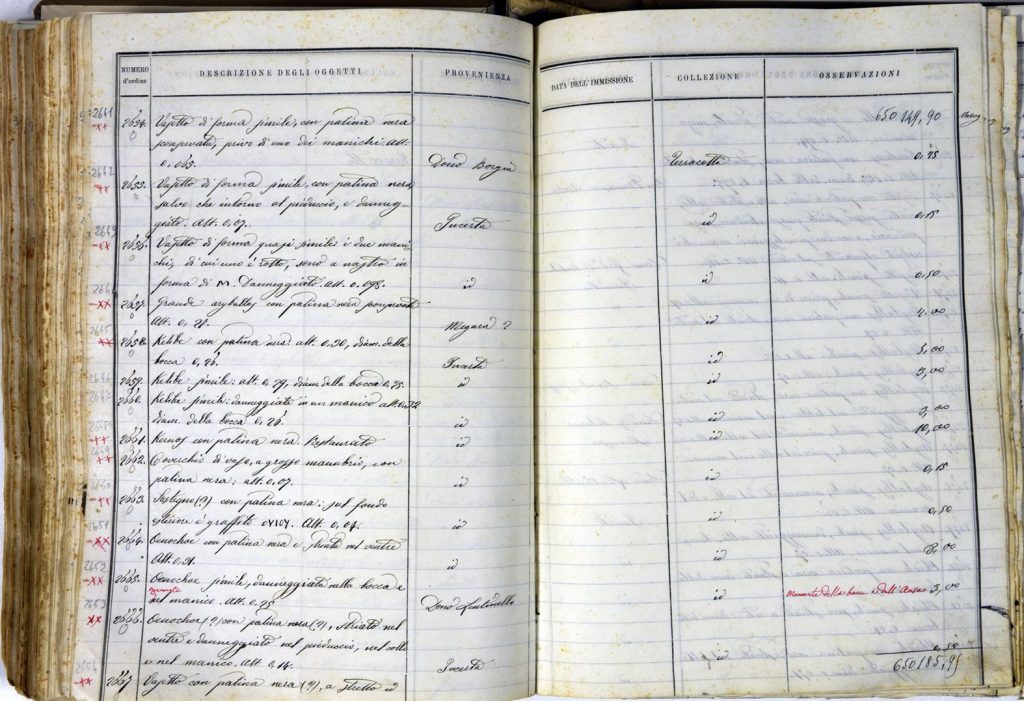 NUMERO d'ordine DESCRIZIONE DEGLI OGGETTI PROVENIENZA DATA DELL'IMMISSIONE COLLEZIONE OSSERVAZIONI
650149,90
2641
2654. Vasetto di forma simile, con patina nera
conservata, privo di uno dei manichi. Alt.
0,065. Dono Borgia Terrecotte 0,25
2655. Vasetto di forma simile, con patina nera
salvo che intorno al peduccio, e danneg-
giato. Alt. 0,07. Incerta id 0,15
2656. Vasetto di forma quasi simile: i due mani-
chi, di cui uno è rotto, sono a nastro in
forma di M. Danneggiato. Alt. 0,095. id id 0,50
2657. Grande aryballos con patina nera conservata
Alt. 0,21. Megara? id 4,00
2658. Kelebe con patina nera: alt. 0,30, diam. della
bocca 0,26. Incerta id 5,00
2659. Kelebe simile: alt. 0,29, diam. della bocca 0,25. id id 3,00
2660. Kelebe simile: danneggiata in un manico alt. 0,32
diam. della bocca 0,26. id 3,00
2661. Kernos con patina nera. Restaurato id id 10,00
2662. Coverchio di vaso, a grosso manubrio, con
patina nera: alt. 0,07. id id 0,15
2663. Sostegno (?) con patina nera: sul fondo
esteriore è graffito Alt. 0,04. id id 0,50
2664. Oenochoe con patina nera e striata nel ventre
Alt. 0,21. id id 3,00
2665. Oenochoe simile, danneggiata nella bocca e
nel manico. Alt. 0,25 Dono id Mancante della base e dell'Ansa 3,00
2666. Oenochoe (?) con patina nera (?), striato nel
ventre e danneggiato nel peduccio, nel collo
e nel manico. Alt. 0,14. Incerta id 0,50
650185,95
2667 Vasetto con patina nera (?), a stretto id